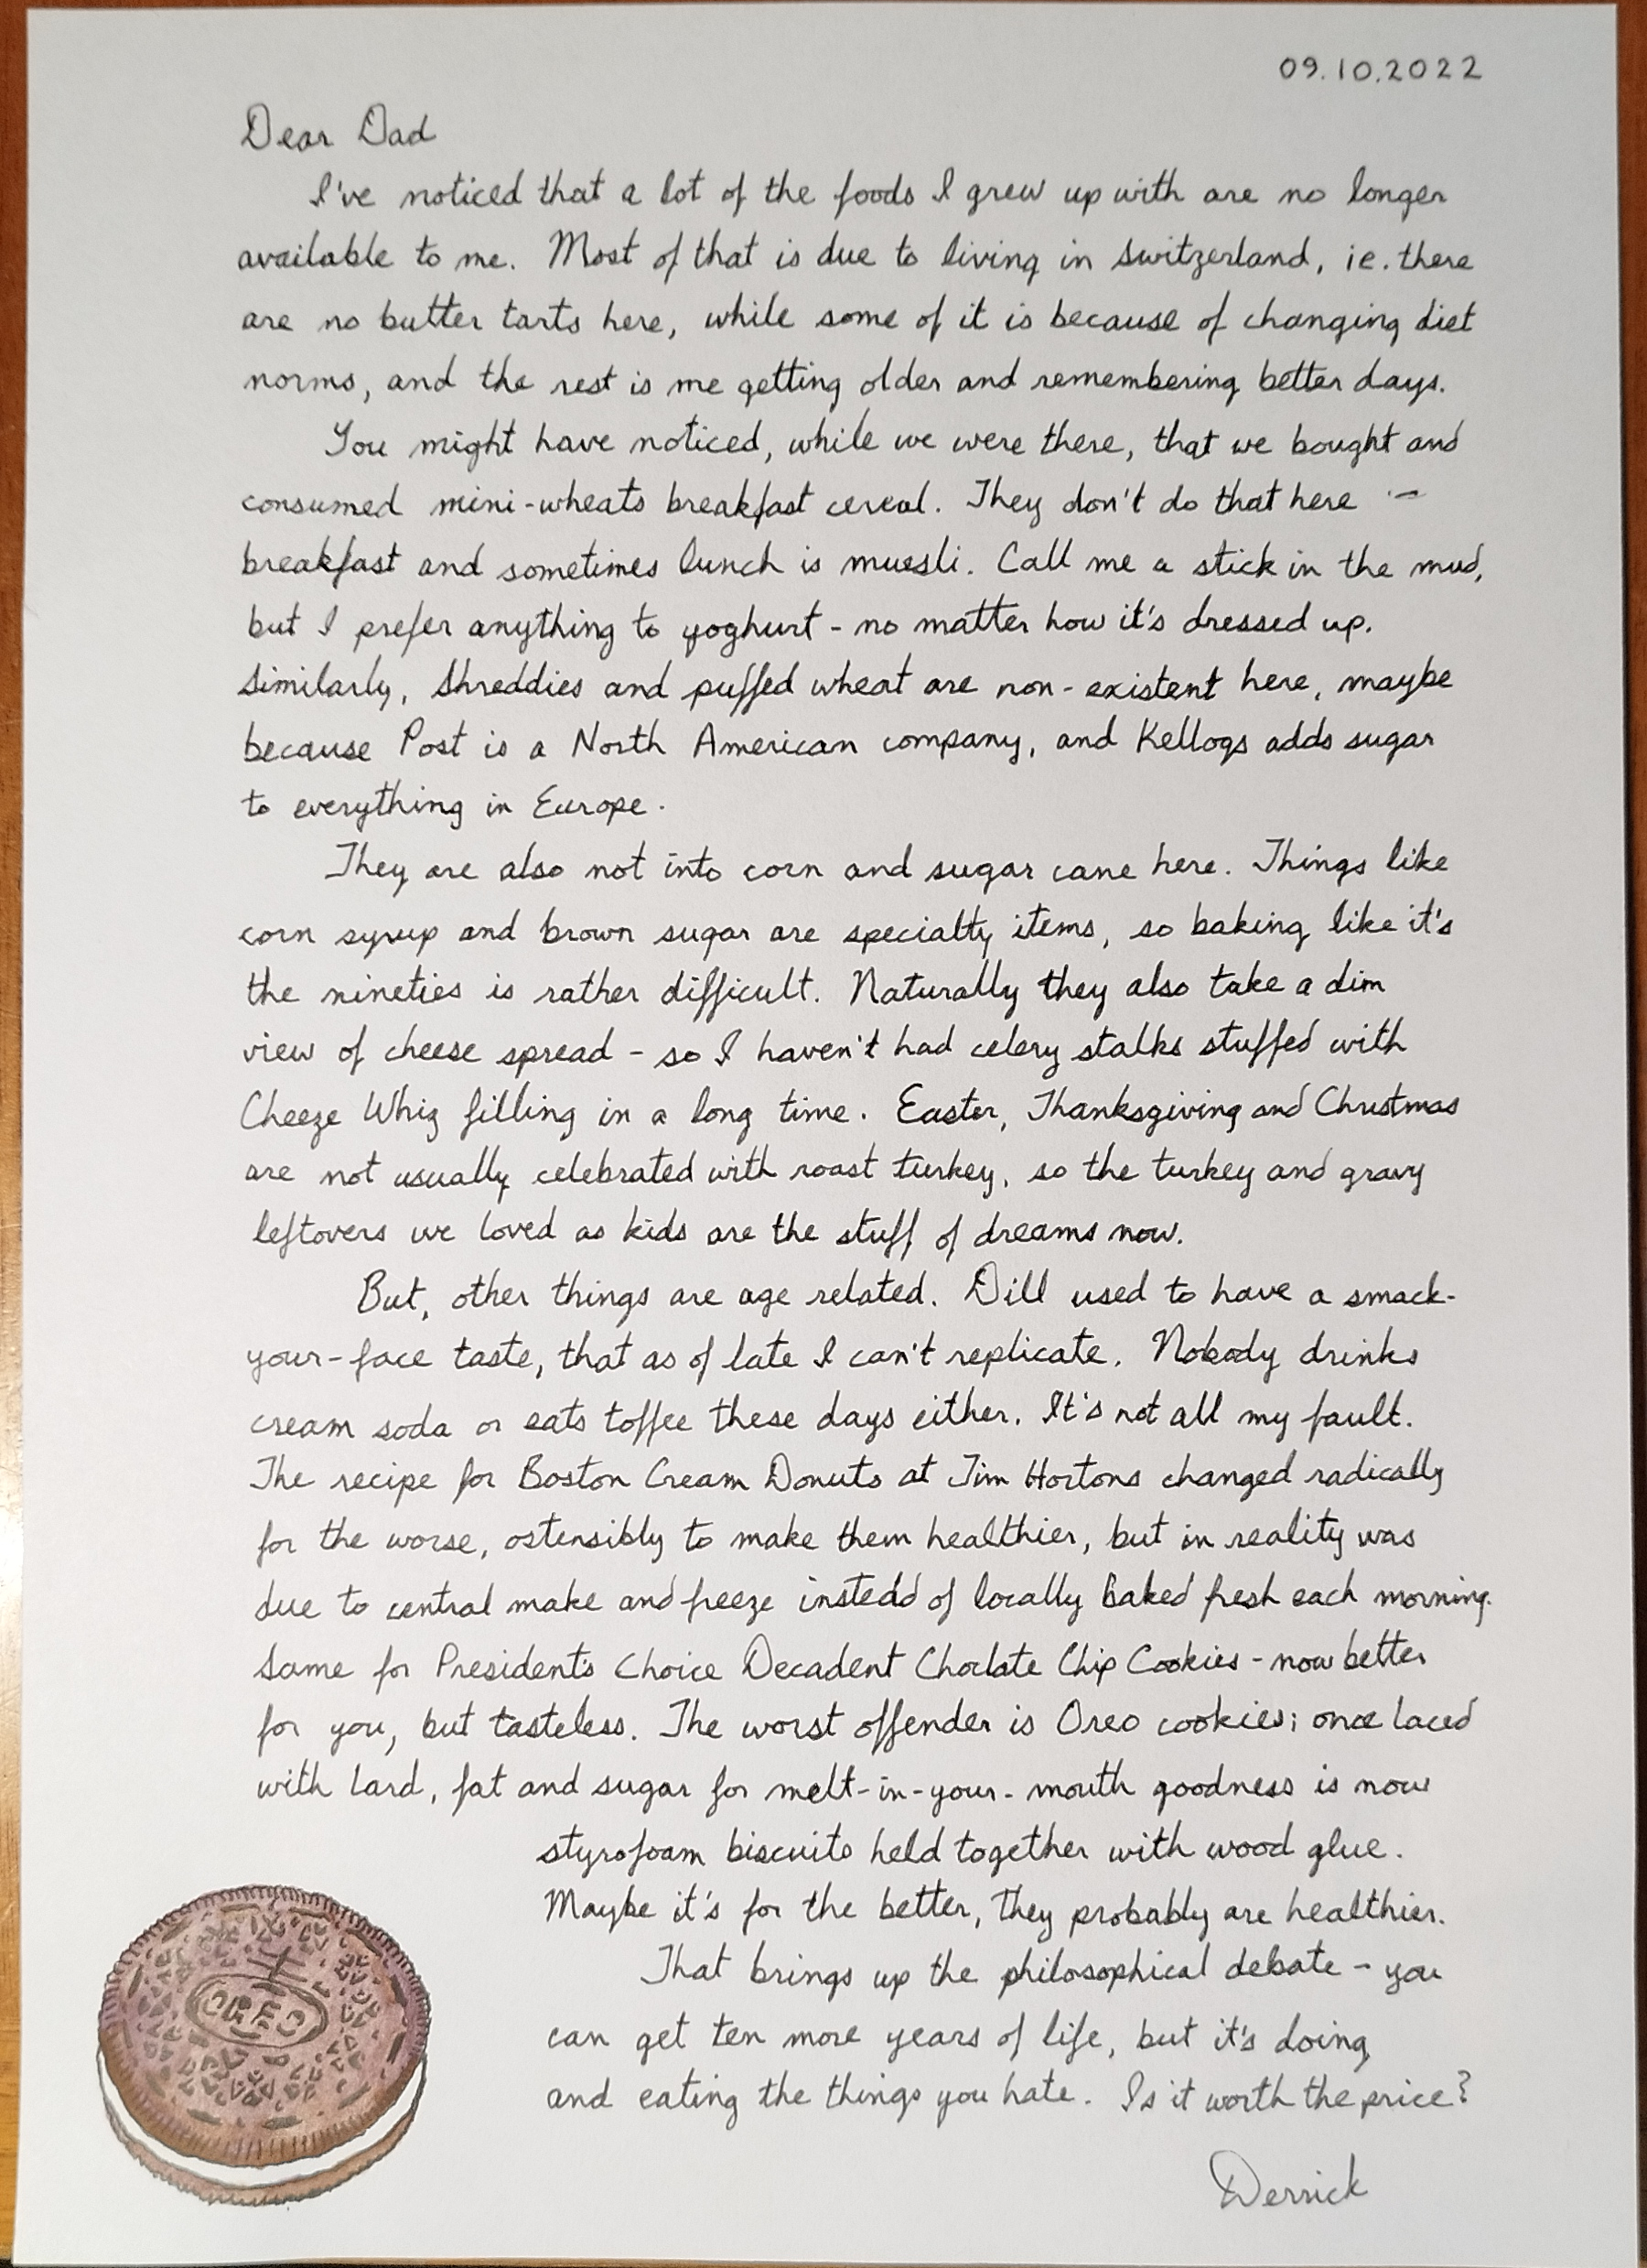 09.10.2022
Dear Dad
I've noticed that a lot of the foods I grew up with are no longer
available to me. Most of that is due to living in Switzerland, ie. there
are no butter tarts here, while some of it is because of changing diet
norms, and the rest is me getting older and remembering better days.
You might have noticed, while we were there, that we bought and
consumed mini-wheats breakfast cereal. They don't do that here -
breakfast and sometimes lunch is muesli. Call me a stick in the mud,
but I prefer anything to yoghurt - no matter how it's dressed up.
Similarly, Shreddies and puffed wheat are non-existent here, maybe
because Post is a North American company, and Kellogs adds sugar
to everything in Europe.
They are also not into corn and sugar cane here. Things like
corn syrup and brown sugar are specialty items, so baking like it's
the nineties is rather difficult. Naturally they also take a dim
view of cheese spread - so I haven't had celery stalks stuffed with
Cheeze Whiz filling in a long time. Easter, Thanksgiving and Christmas
are not usually celebrated with roast turkey, so the turkey and gravy
leftovers we loved as kids are the stuff of dreams now.
But, other things are age related. Dill used to have a smack-
your-face taste, that as of late I can't replicate. Nobody drinks
cream soda or eats toffee these days either. It's not all my fault.
The recipe for Boston Cream Donuts at Tim Hortons changed radically
for the worse, ostensibly to make them healthier, but in reality was
due to central make and freeze instead of locally baked fresh each morning.
Same for President's Choice Decadent Choclate Chip Cookies - now better
for you, but tasteless. The worst offender is Oreo cookies; once laced
with lard, fat and sugar for melt-in-your-mouth goodness is now
styrofoam biscuits held together with wood glue.
Maybe it's for the better, they probably are healthier.
That brings up the philosophical debate - you
can get ten more years of life, but it's doing
and eating the things you hate. Is it worth the price?
Derrick
OREO